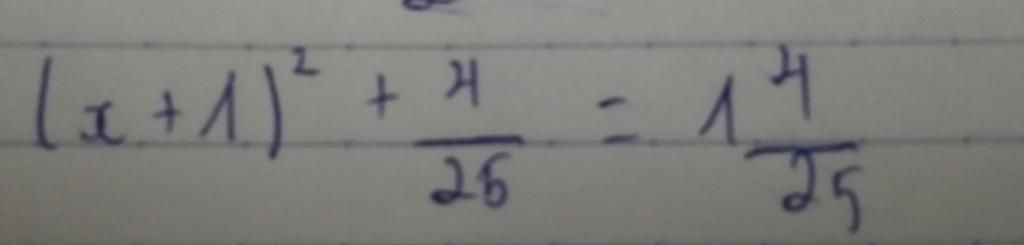 (x+1)² + 4/25 = 1 4/25